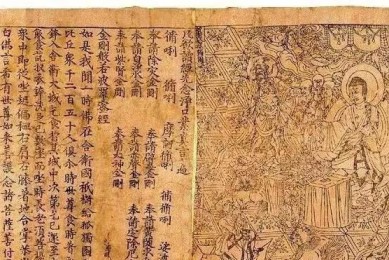 凡欲讀經先念淨口業真言一遍
脩唎 脩唎 摩訶脩唎 脩脩唎 娑婆
奉請除災金剛
奉請白淨水金剛 奉請赤聲金剛 奉請定除厄
奉請紫賢金剛 奉請大神金剛
金剛般若波羅蜜經
如是我聞一時佛在舍衛國祇樹給孤獨園
比丘衆千二百五十人俱尒時世尊食時
鉢入舍衛大城乞食於其城中次第乞已還至
飯食訖收衣鉢洗足已敷座而坐時長老須菩提
衆中即從坐起偏袒右肩右膝着地合掌恭
白佛言希有世尊如來善護念諸菩薩善付